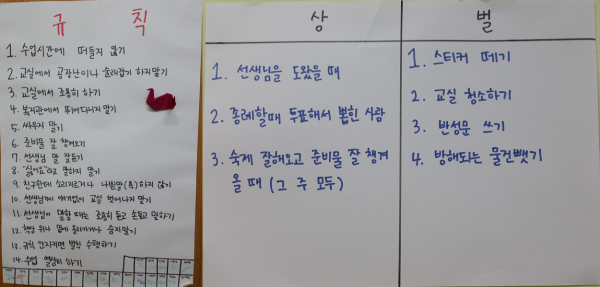 규 칙
1. 수업시간에 떠들지 않기
2. 교실에서 공장난이나 술래잡기 하지말기
3. 교실에서 조용히 하기
4. 복지관에서 뛰어다니지 말기
5. 싸우지 말기
6. 준비물 잘 챙겨오기
7. 선생님 말 잘듣기
8. "싫어요"라고 말하지 말기
9. 친구한테 소리지르거나 나쁜말(욕)하지 않기
10. 선생님께 얘기없이 교실 벗어나지 말기
11. 선생님이 말할 때는 조용히 듣고 손들고 말하기
12. 책상 위나 밑에 올라가거나 숨지말기
13. 규칙 안지키면 벌칙 수행하기
14. 수업 열심히 하기
상
1. 선생님을 도왔을 때
2. 종례할때 투표해서 뽑힌 사람
3. 숙제 잘해오고 준비물 잘 챙겨
올 때 (그 주 모두)
벌
1. 스티커 떼기
2. 교실 청소하기
3. 반성문 쓰기
4. 방해되는 물건뺏기